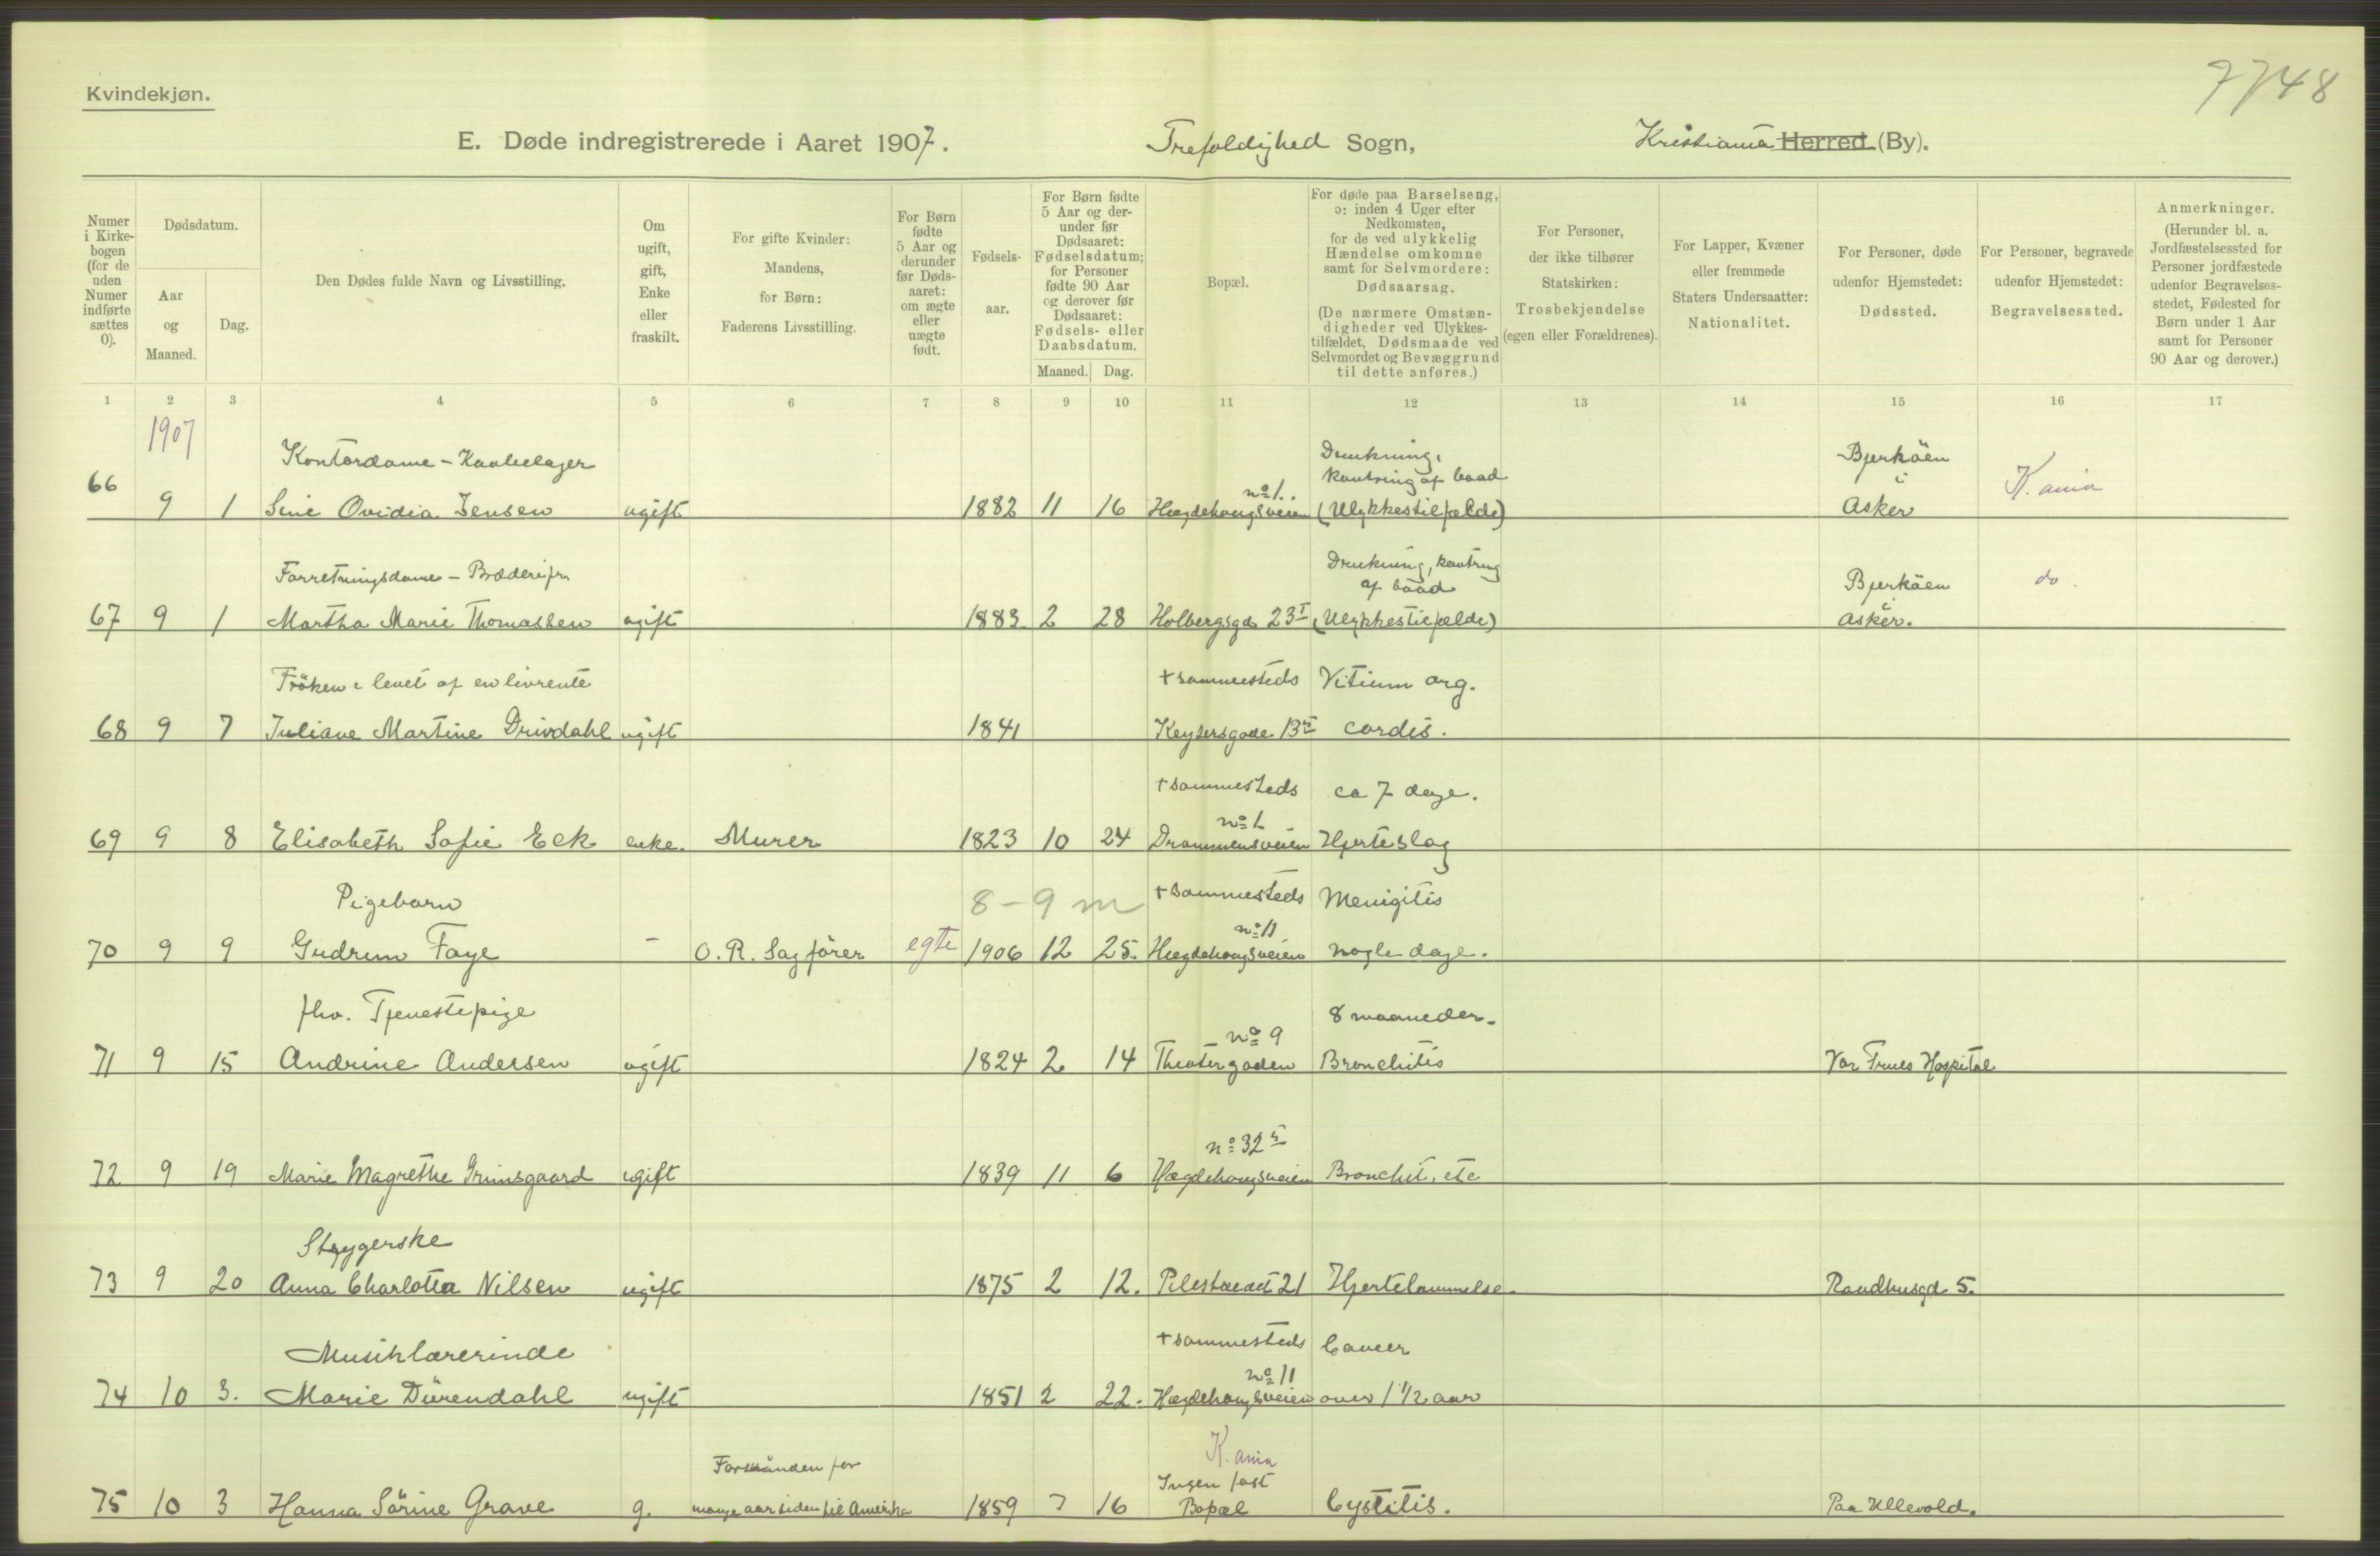 7748
Kvindekjøn.
E. Døde indregistrerede i Aaret 1907. Trefoldighed Sogn, Kristiania Herred (By).
Numer i Kirke-bogen (for de uden Numer indførte sættes 0).
Dødsdatum.
Aar og Maaned.
Dag.
Den Dødes fulde Navn og Livsstilling.
Om ugift, gift, Enke eller fraskilt.
For gifte Kvinder: Mandens, for Børn: Faderens Livsstilling.
For Børn fødte 5 Aar og derunder før Døds-aaret: om ægte eller uægte født.
Fødsels-aar.
For Børn fødte 5 Aar og der-under før Dødsaaret: Fødselsdatum; for Personer fødte 90 Aar og derover før Dødsaaret: Fødsels- eller Daabsdatum.
Maaned. Dag.
Bopæl.
For døde paa Barselseng, ɔ: inden 4 Uger efter Nedkomsten, for de ved ulykkelig Hændelse omkomne samt for Selvmordere: Dødsaarsag.
(De nærmere Omstæn-digheder ved Ulykkes-tilfældet, Dødsmaade ved Selvmordet og Bevæggrund til dette anføres.)
For Personer, der ikke tilhører Statskirken: Trosbekjendelse (egen eller Forældrenes).
For Lapper, Kvæner eller fremmede Staters Undersaatter: Nationalitet.
For Personer, døde udenfor Hjemstedet: Dødssted.
For Personer, begravede udenfor Hjemstedet: Begravelsessted.
Anmerkninger. (Herunder bl. a. Jordfæstelsessted for Personer jordfæstede udenfor Begravelses-stedet, Fødested for Børn under 1 Aar samt for Personer 90 Aar og derover.)
1 2 3 4 5 6 7 8 9 10 11 12 13 14 15 16 17
1907
Kontordame - Drukning, Bjerköen
kantring af baad i K.ania
66 9 1 Sine Ovidia Jensen ugift 1882 11 16 Hægdehaugsveien no 1. (Ulykkestilfælde) Asker
Forretningsdame - Broderifr. Drukning, kantring Bjerköen do.
af baad i
67 9 1 Martha Marie Thomassen ugift 1883 2 28 Holbergsgd 23 I (Ulykkestilfælde) Asker.
Fröken: levet af en livrente + sammesteds Vitium org.
68 9 7 Juliane Martine Drivdahl ugift 1841 Keysersgade 13 cordis.
+ sammesteds ca 7 dage.
no 1
69 9 8 Elisabeth Sofie Eck enke. Murer 1823 10 24 Drammensveien Hjerteslag
Pigebarn 8-9 m + sammesteds Menigitis
no 11
70 9 9 Gudrun Faye - O.R. Sagförer egte 1906 12 25. Hægdehaugsveien nogle dage.
fhv. Tjenestepige 8 maaneder.
no 9
71 9 15 Andrine Andersen ugift 1824 2 14 Theatergaden Bronchitis Vor Frues Hospital
no 32
72 9 19 Marie Magrethe Grimsgaard ugift 1839 11 6 Hægdehaugsveien Bronchit, etc
Strygerske
73 9 20 Anna Charlotta Nilsen ugift 1875 2 12. Pilestrædet 21 Hjertelammelse. Raadhusgd 5.
Musiklærerinde + sammesteds Cancer
no 11
74 10 3. Marie Dürendahl ugift 1851 2 22. Hægdehaugsveien over 1 1/2 aar
K.ania
Forsvunden for Ingen fast
75 10 3 Hanna Sörine Grave g. mange aar siden til Amerika 1859 7 16 Bopæl Cystitis. Paa Ullevold.